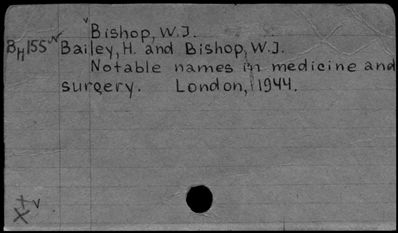 Bishop, W.J.
BH155 Bailey, H. and Bishop, W.J.
Notable names in medicine and
surgery. London, 1944.